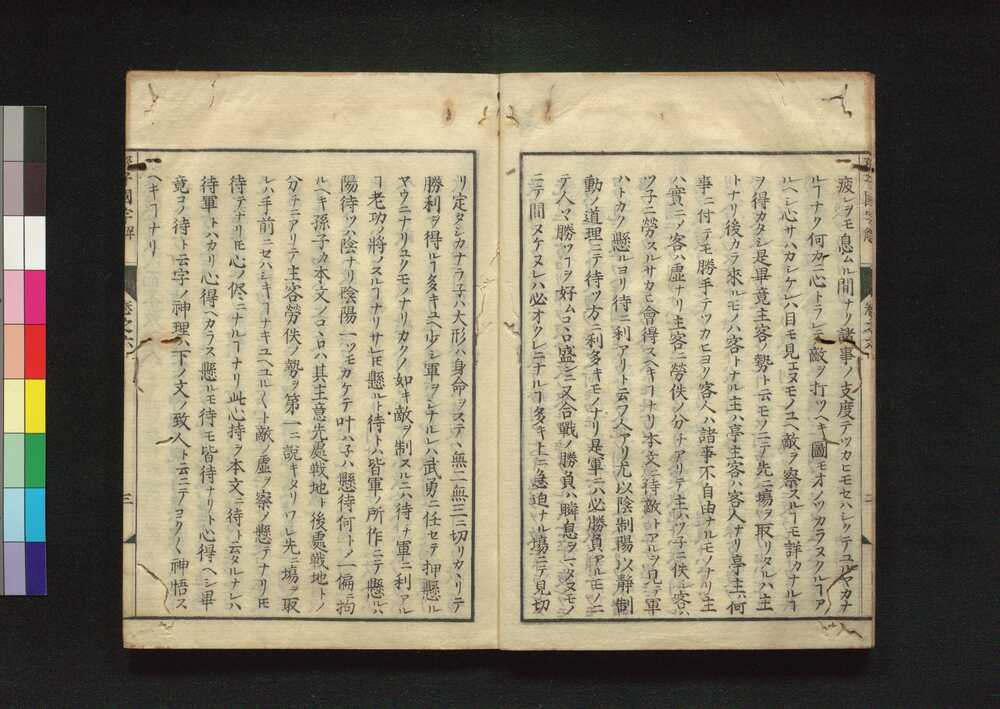 疲レヲモ息ムル間ナリ諸事ノ支度テツカヒモセハシクテユルヤカナ
ルヿナク何カニ心トラレテ敵ヲ打ツヘキ圖モオノツカラヌクルヿア
ルヘシ心サハカシケレハ目モ見エヌモノユヘ敵ヲ察スルヿモ詳カナルヿ
ヲ得カタシ是畢竟主客ノ勢ト云モノニテ先ニ場ヲ取リタルハ主
トナリ後カラ來ルモノハ客トナル主ハ亭主客ハ客人ナリ亭主ハ何
事ニ付テモ勝手テツカヒヨク客人ハ諸事不自由ナルモノナリ主
ハ實ニメ客ハ虚ナリ主客ニ勞佚ノ分チアリテ主ハツ子ニ佚シ客ハ
ツ子ニ勞スルサカヒ會得スヘキヿナリ本文ニ待敵トアルヲ見テ軍
ハトカク懸ルヨリ待ニ利アリト云フ人アリ尤以陰制陽以靜制
動ノ道理ニテ待ツ方ニ利多キモノナリ是軍ニハ必勝負アルモノニ
テ人々勝ツヿヲ好ムコヽロ盛ンニ又合戰ノ勝負ハ瞬息ヲマタヌモノ
ニテ間ヌケヌレハ必オクレニナルヿ多キ上ニ急迫ナル塲ニテ見切
リ定メシカナラ子ハ大形ハ身命ヲステヽ無二無三ニ切リカヽリテ
勝利ヲ得ルヿ多キユヘ少シ軍ヲシナルレハ武勇ニ任セテ押懸ル
ヤウニナリユクモノナリカクノ如キ敵ヲ制スルニハ待チ軍ニ利アル
ヿ老功ノ將ノスルヿナリサレ𪜈懸ルト待トハ皆軍ノ所作ニテ懸ルハ
陽待ツハ陰ナリ陰陽一ツモカケテ叶ハ子ハ懸待何トノ一偏ニ拘
ルヘキ孫子カ本文ノコヽロハ其主意先處戰地ト後處戰地トノ
分チニアリテ主客勞佚ノ勢ヲ第一ニ説キタリワレ先ニ塲ヲ取
レハ手前ニセハシキヿナキユヘユル〱ト敵ノ虚ヲ察メ懸テナリ𪜈
待テナリ𪜈心ノ侭ニナルヿナリ此心持ヲ本文ニ待トハ云タルナレハ
待軍トハカリ心得ヘカラス懸ルモ待モ皆待ナリト心得ヘシ畢
竟コノ待ト云字ノ神理ハ下ノ文ノ致人ト云ニテヨク〱神悟ス
ヘキヿナリ
孫子國字解
卷之六
三